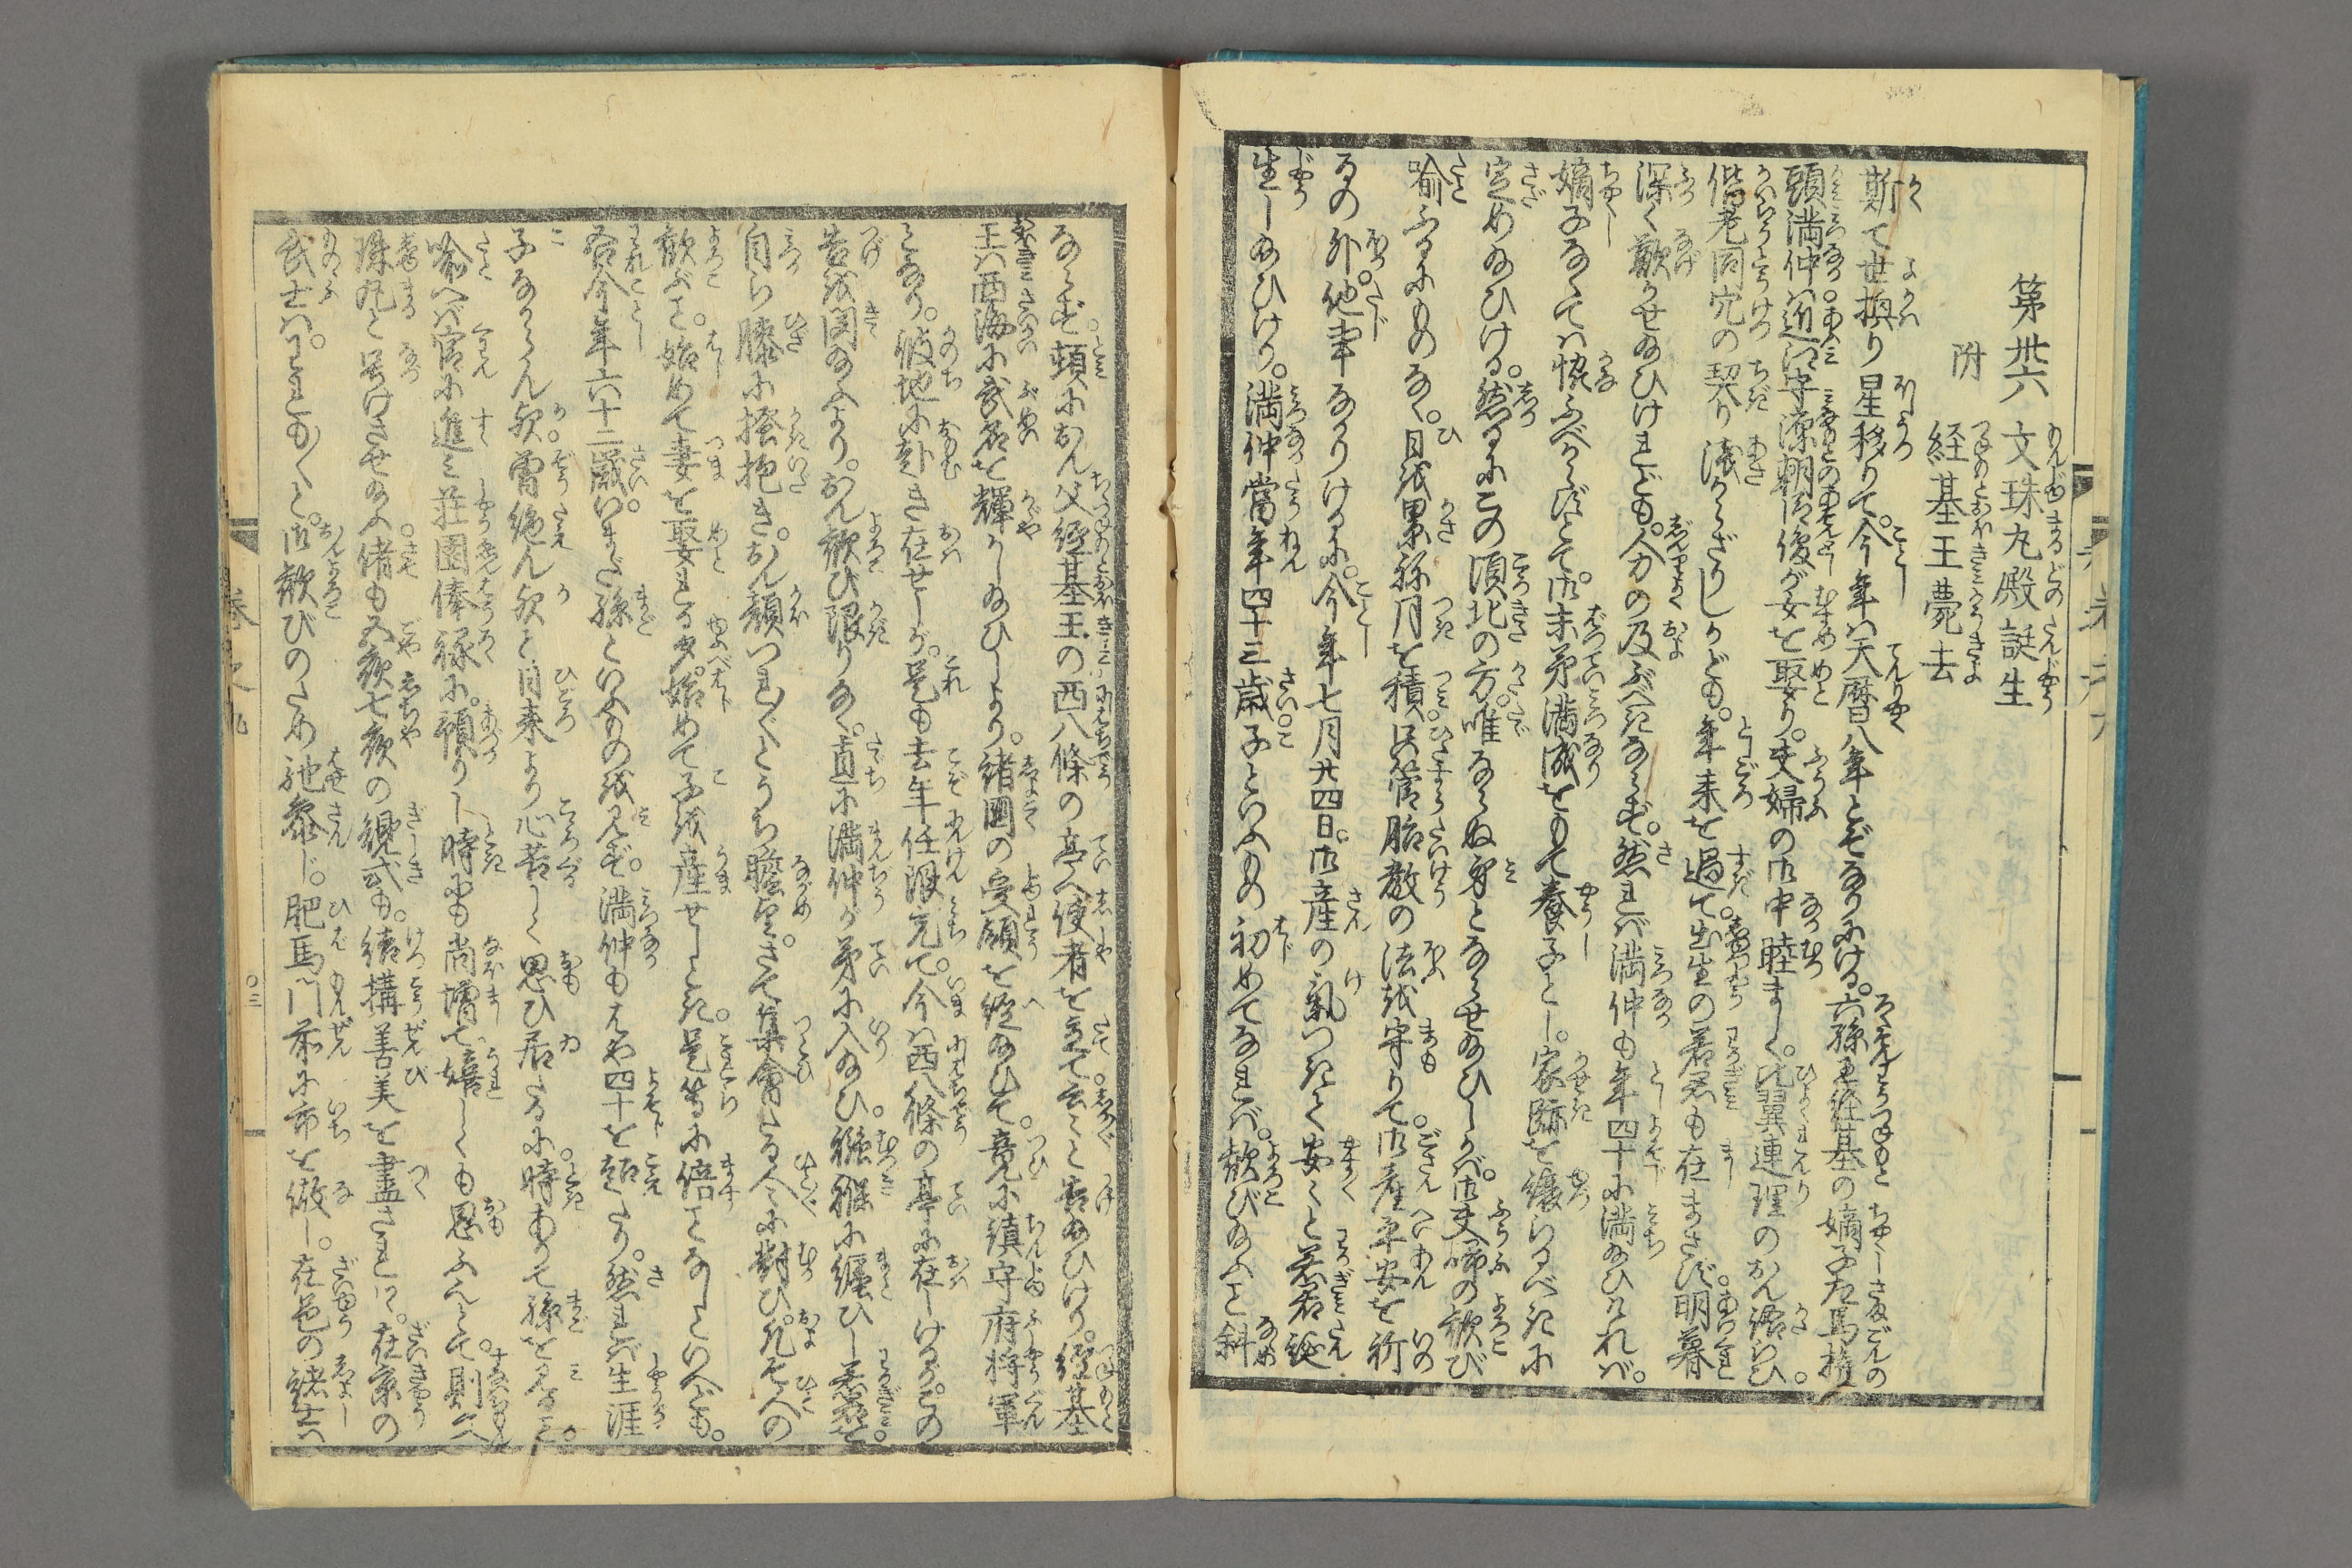 第卅六 文珠丸殿誕生
附 経基王薨去
斯て世換り星移りて。今年ハ天暦八年とぞなりにける。六孫王経基の嫡子左馬権
頭満仲ハ近江守源朝臣俊が女を娶り。夫婦の御中睦まじく。比翼連理のおん語らひ。
偕老同穴の契り浅からざりしかども。年来を過て。出生の若君も在まさず。明暮
深く歎かせ給ひけれども。人力の及ぶべきならず。然れば満仲も年四十に満給ひければ。
嫡子なくてハ愜ふべからずとて。御末弟満成をもて養子とし。家跡を譲らるべきに
定め給ひける。然るにこの頃北の方。唯ならぬ身とならせ給ひしかバ。御夫婦の歓び
喩ふるにものなく。日を累ね月を積。只管胎教の法を守りて。御産平安を祈
るの外。他事なかりけるに。今年七月廿四日。御産の氣つきて安々と若君誕
生し給ひけり。満仲當年四十三歳子といふもの初めてなれバ。歓び給ふこと斜
ならず。頓におん父経基王の西八條の亭へ使者を立て。云々と告給ひけり。経基
王ハ西海に武名を輝かし給ひしより。諸國の受領を経給ひて。竟に鎮守府将軍
となり。彼地に赴き在せしが。是も去年任限充て。今ハ西八條の亭に在しけるが。この
告を聞給ふより。おん歓び限りなく。直に満仲が弟に入給ひ。襁褓に纏ひし若君を。
自ら膝に掻抱き。おん顔つれ〴〵とうち瞻望。さて集會たる人々に對ひ。凡そ人の
歓ぶこと。始めて妻を娶れる夕。始めて子を産せしとき。是等に倍ことなしといへども。
吾今年六十二歳。いまだ孫といふものを見ず。満仲もはや四十を超たり。然れバ生涯
子なからん歟。曽絶ん歟と。日来より心苦しく思ひ居たるに。時ありて孫を見ること。
喩へバ官に進ミ荘園俸禄に。預りし時にも尚増て。嬉しくも思ふんとて。則文
珠丸と号けさせ給ふ。偖も五夜七夜の規式も。結構善美を盡されけり。在京の
武士ハわれも〳〵と。御歓びのため馳参じ。肥馬門前に市を做し。在邑の諸士ハ
巻之九
〇三